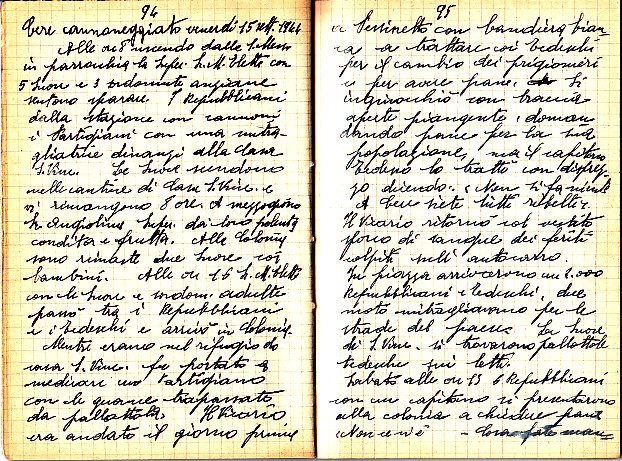 94
Cere cannoneggiato venerdì 15 sett. 1944
Alle ore 8 uscendo dalla S. Messa
in parrocchia la Super. S. M. Eletta con
5 suore e 3 ordomite anziane
sentono sparare. I Repubblicani
dalla stazione con cannoni
i Partigiani con una mitra-
gliatrice dinanzi alla Casa
S. Vinc. Le suore scendono
nelle cantine di Casa S. Vinc. e
vi rimangono 8 ore. A mezzogiorno
Sr. Angiolina Super. dà loro polenta
condita e frutta. Alla Colonia
sono rimaste due suore coi
bambini. Alle ore 16 S. M. Eletta
con le suore e sordom. adulte
passò tra i Repubblicani
e i tedeschi e arrivò in Colonia.
Mentre erano nel rifugio di
casa S. Vinc. fu portato a
medicare un Partigiano
con le guance trapassate
da pallottola. Il Vicario
era andato il giorno prima
95
a Pessinetto con bandiera bian
ca a trattare coi tedeschi
per il cambio dei prigionieri
e per avere pane. Si
inginocchiò con braccia
aperte piangente, doman
dando pane per la sua
popolazione, ma il capitano
tedesco lo trattò con disprez
zo dicendo: Non si fa niente
A Cere siete tutti ribelli.
Il Vicario ritornò col vestito
sporco di sangue dei feriti
colpiti sull'autocarro.
In piazza arrivarono un 2.000
Repubblicani e tedeschi, due
moto mitragliavano per le
strade del paese. Le suore
di S. Vinc. si trovarono pallottole
tedesche sui letti.
Sabato alle ore 13 6 Repubblicani
con un capitano si presentarono
alla colonia a chiedere pane
Non ce n'è -